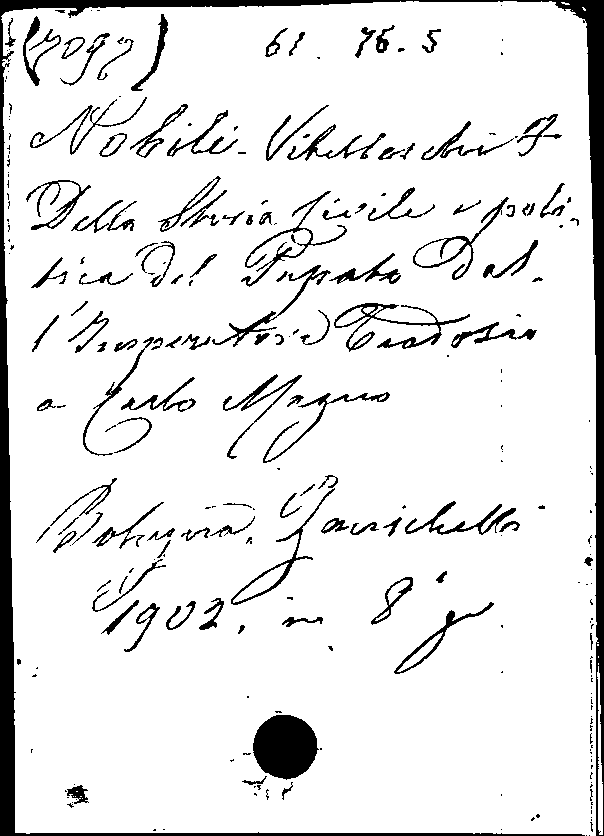 (7097) 61. 76. 5
Nobili-Vitelleschi F
Della Storia civile e poli-
tica del Papato Dal-
l'Imperatore Teodosio
a Carlo Magno
Bologna. Zanichelli
1902. in 8° gr